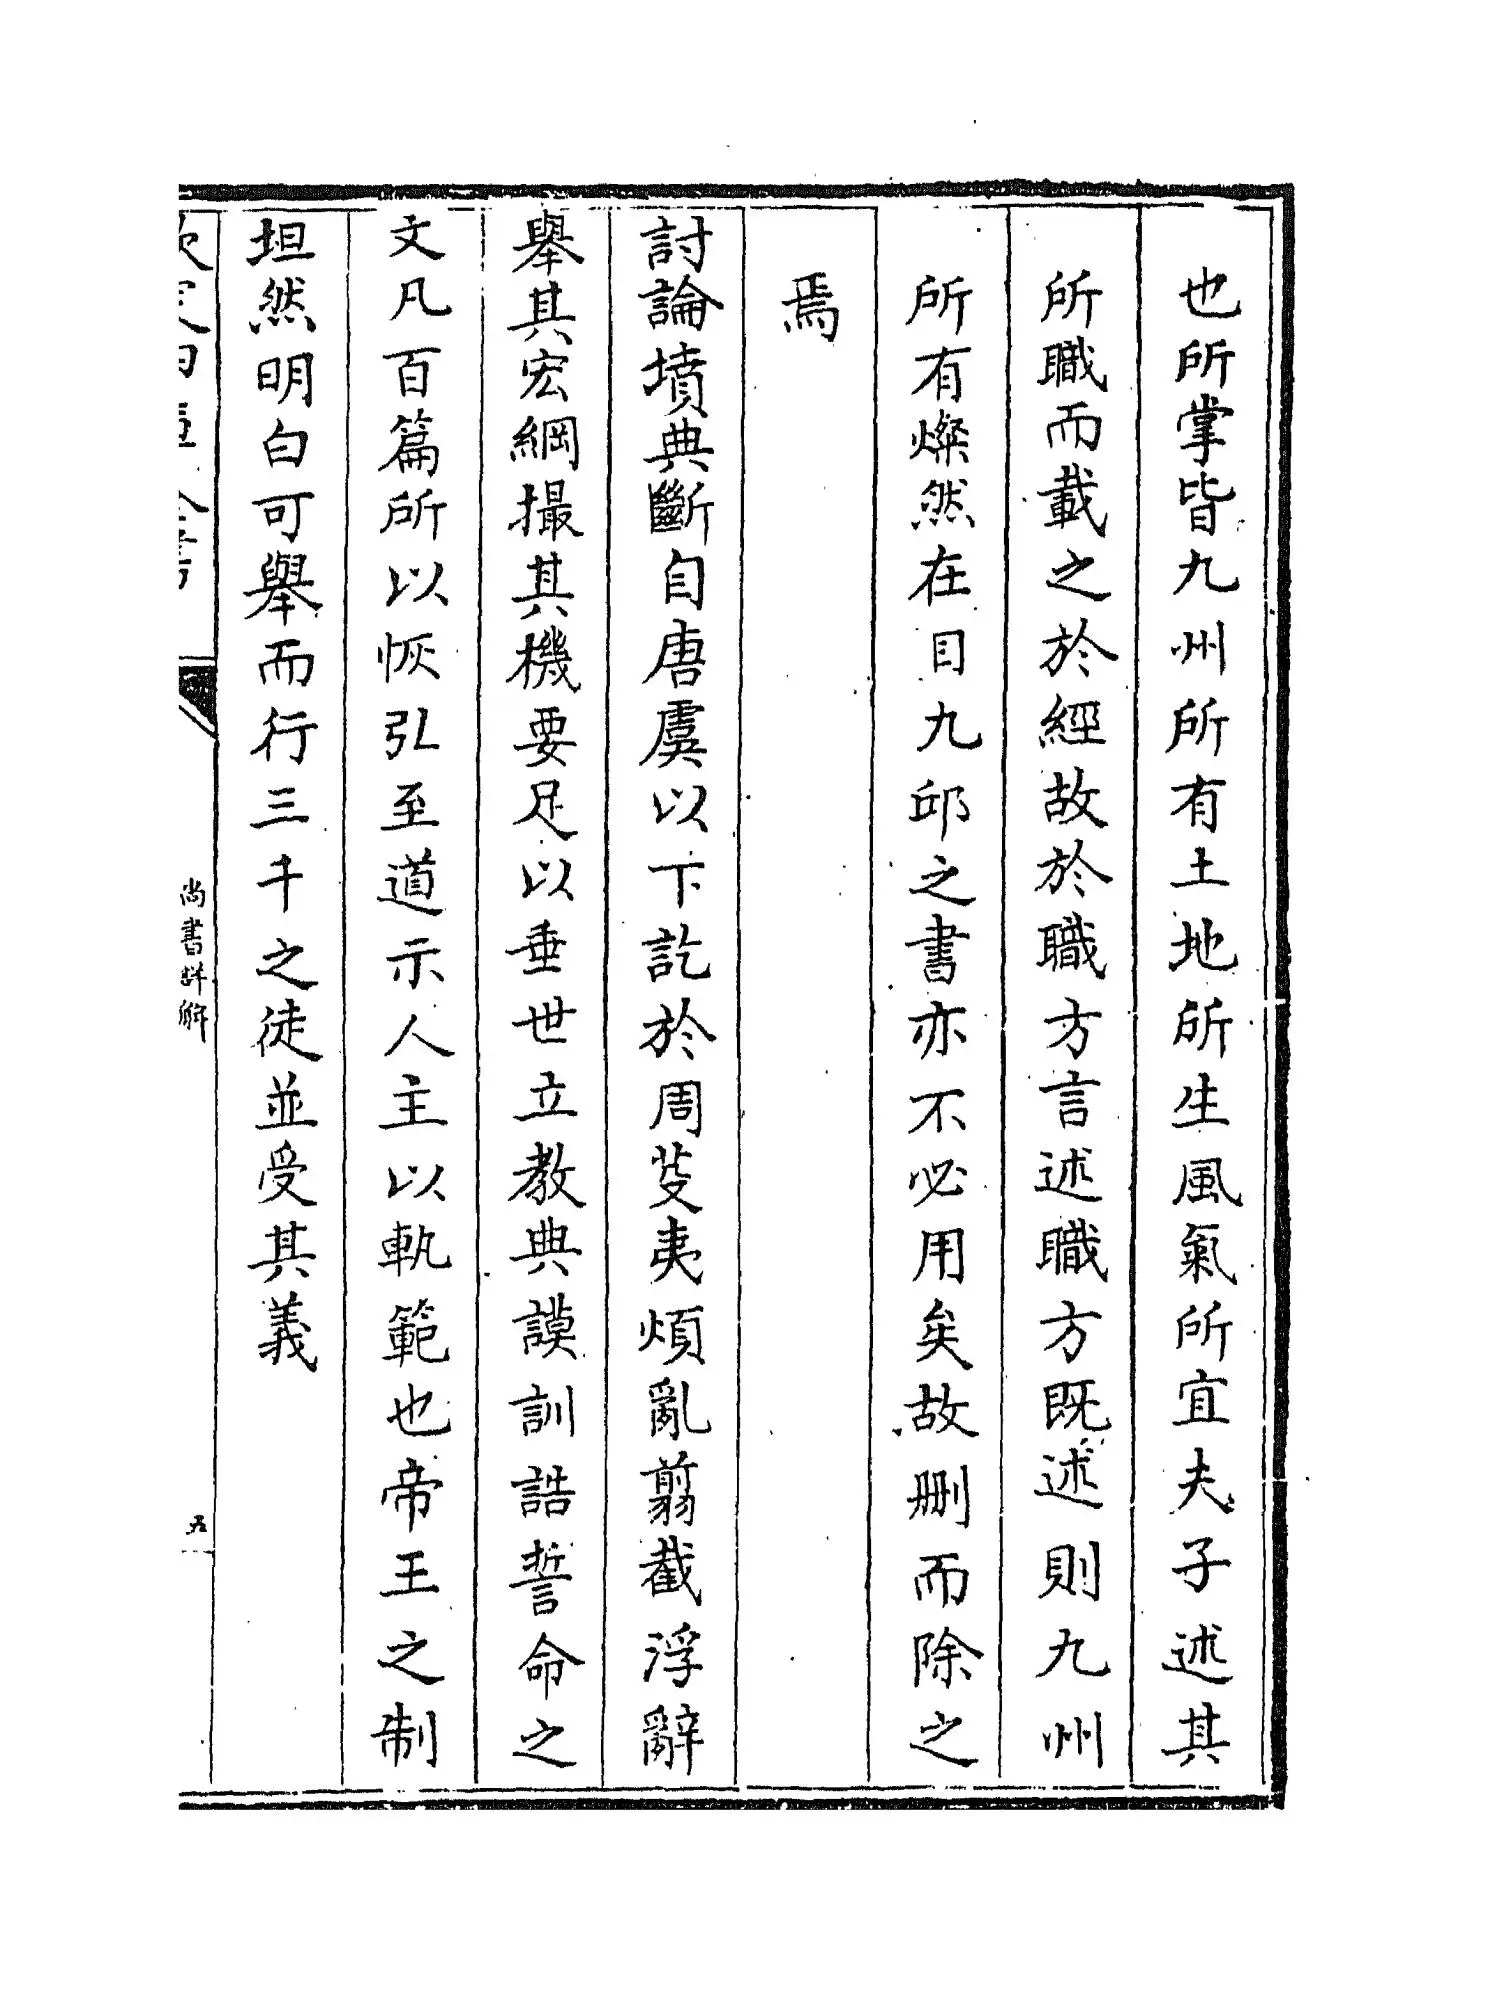 也所掌皆九州所有土地所生風氣所宜夫子述其
所職而載之於經故於職方言述職方既述則九州
所有燦然在目九邱之書亦不必用矣故刪而除之
焉
討論墳典斷自唐虞以下訖於周芟夷煩亂翦截浮辭
舉其宏綱撮其機要足以垂世立教典謨訓誥誓命之
文凡百篇所以恢弘至道示人主以軌範也帝王之制
坦然明白可舉而行三千之徒並受其義
尚書詳解
五